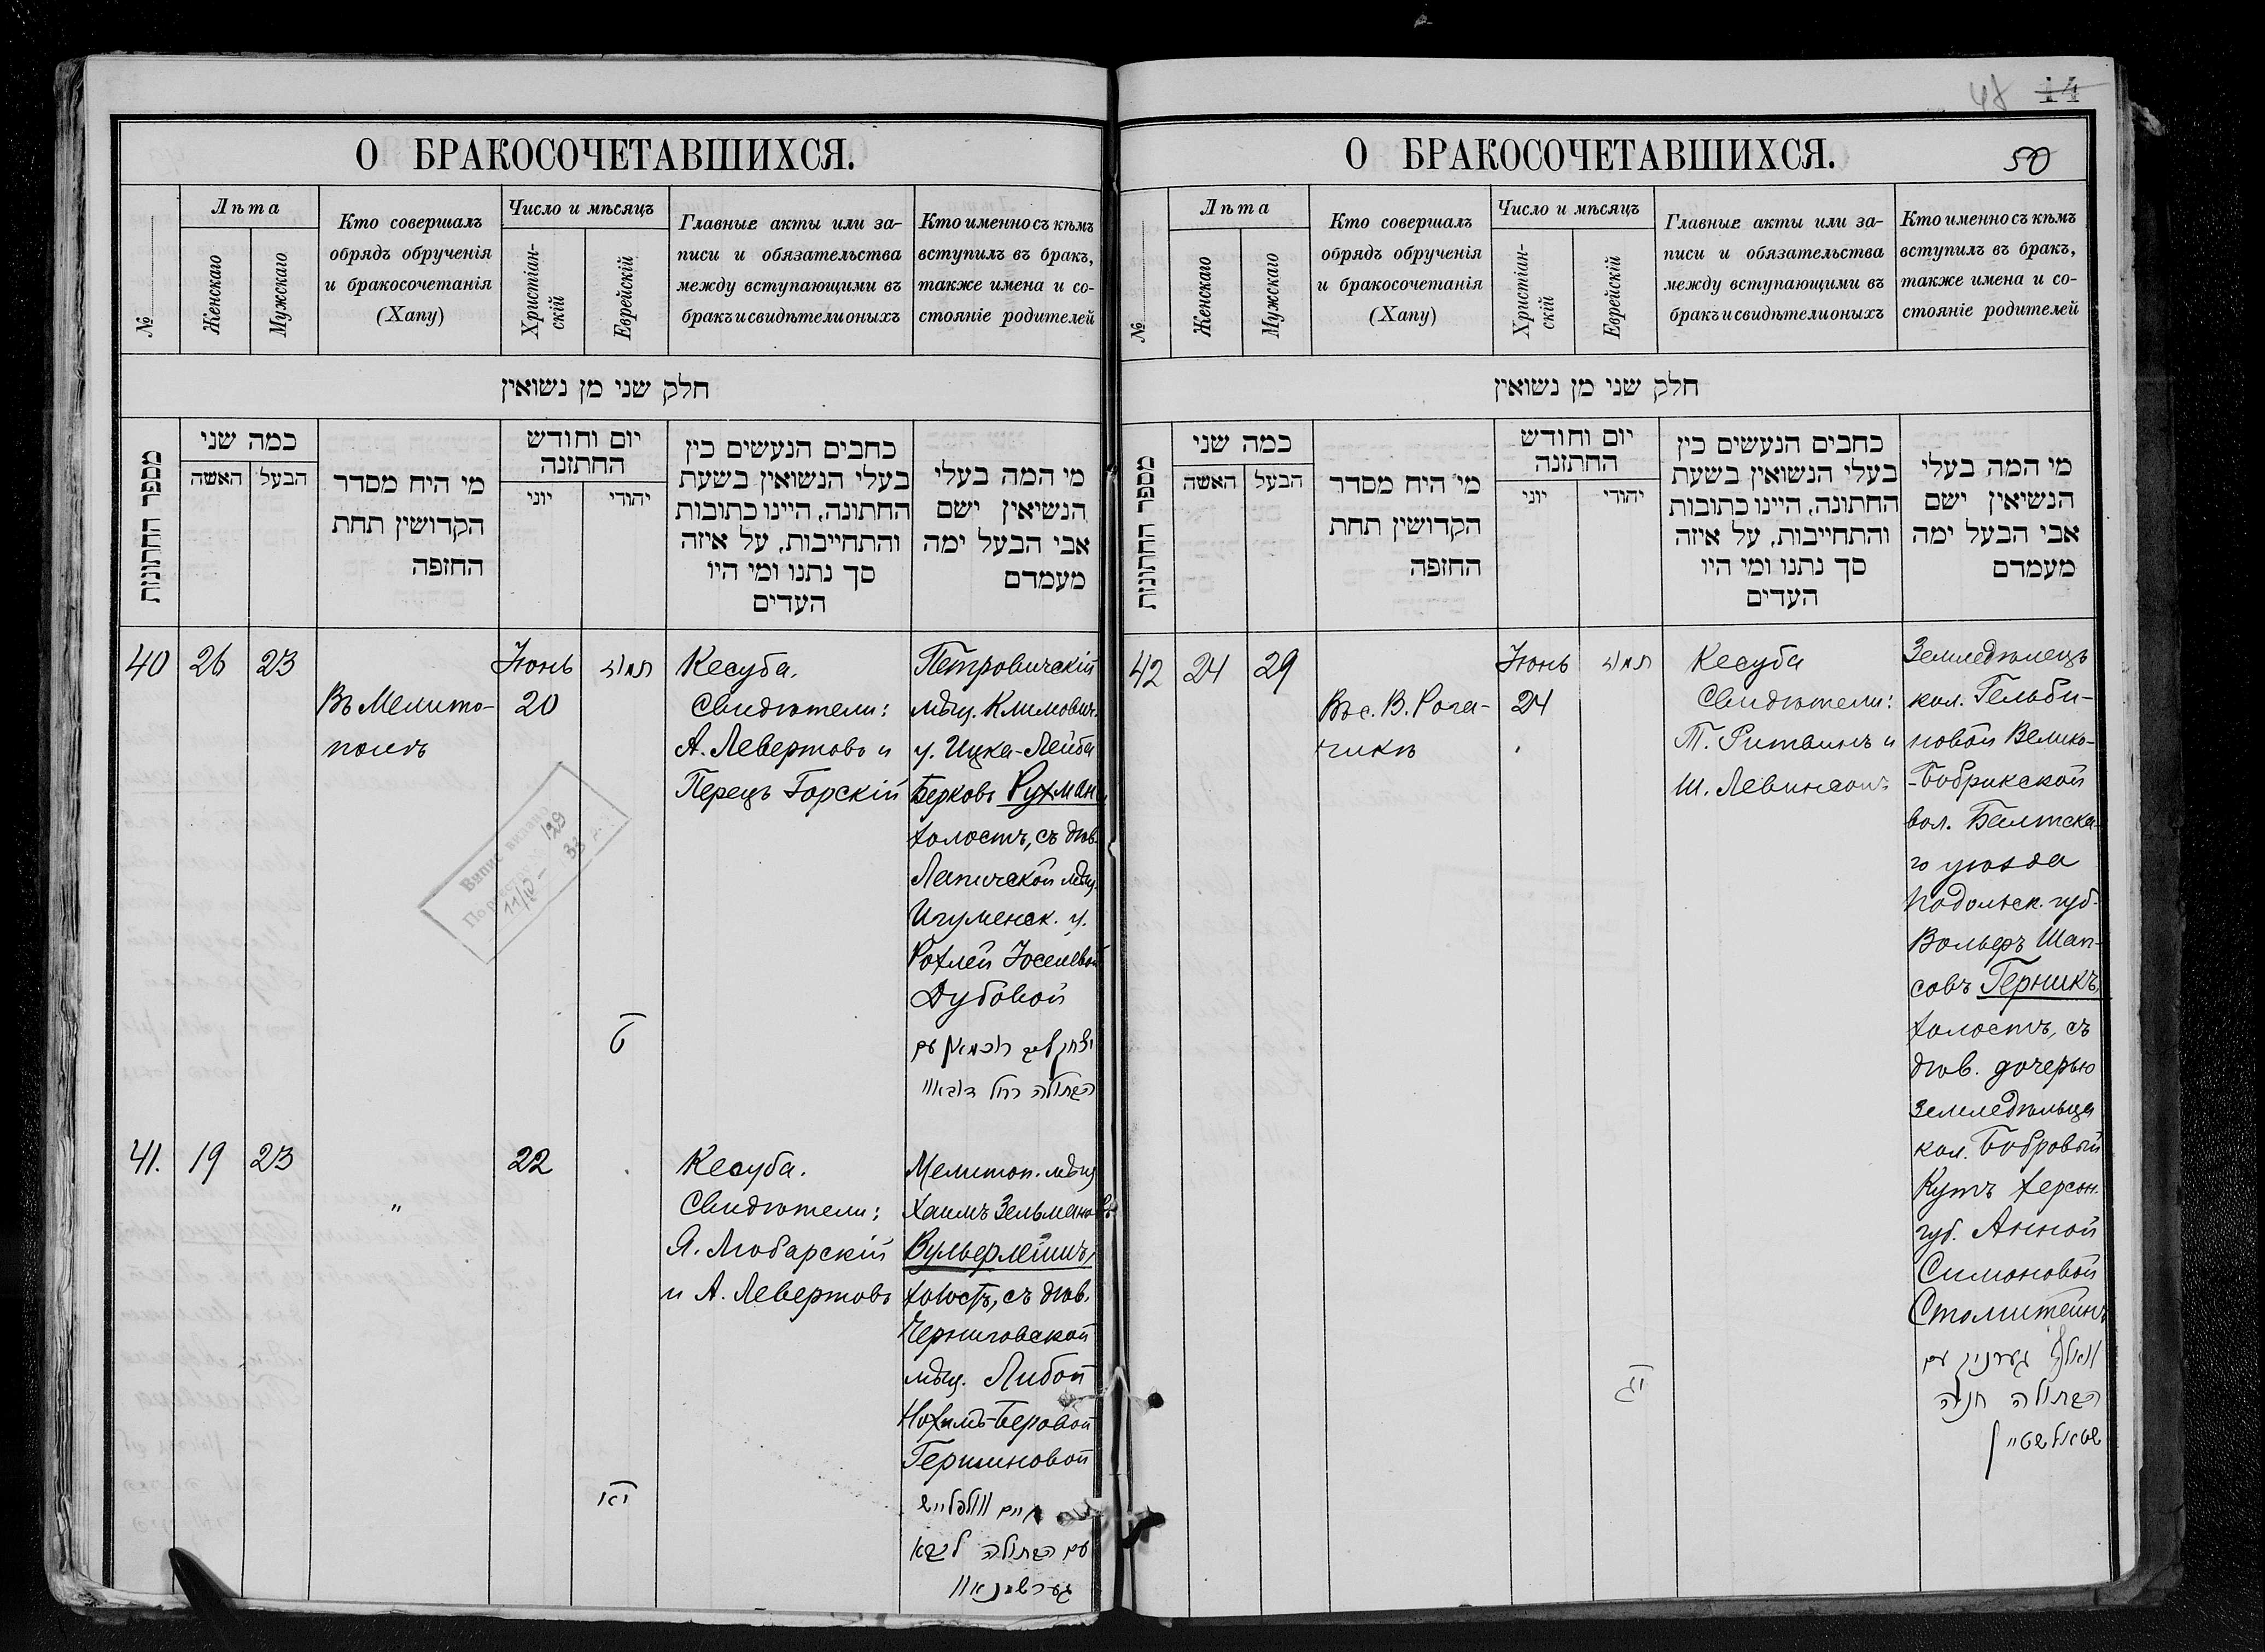 48 14
О БРАКОСОЧЕТАВШИХСЯ.
№
Лѣта
Женскаго
Мужскаго
Кто совершалъ
обрядъ обрученія
и бракосочетанія
(Хапу)
Число и мѣсяцъ
Христіан-
скій
Еврейскій
Главные акты или за-
писи и обязательства
между вступающими въ
бракъ и свидѣтели оныхъ
Кто именно съ кѣмъ
вступилъ въ бракъ,
также имена и со-
стояніе родителей
חלק שני מן נשואין
מספר החתונות
כמה שני
האשה
הבעל
מי היח מסדר
הקדושין תחת
החזפה
יום וחודש
החתזנה
יוני
יהודי
כחבים הנעשים כין
בעלי הנשואין בשעת
החתונה, היינו כתובות
והתחייבות, על איזה
סך נתנו ומי היו
העדים
מי המה בעלי
הנשיאין ישם
אבי הבעל ימה
מעמדם
40 26 23
Въ Мелито-
полѣ
Іюнь
20
תמוז
ט
Кесуба.
Свидѣтели:
А. Левертовъ и
Перецъ Горскій
Петровичскій
мѣщ. Климович.
у. Ицка-Лейба
Берковъ Рухман
холостъ, съ дѣв.
Лапичской мѣщ.
Игуменск. у.
Рохлей Іоселевой
Дубовой
יצחק ליב רוכמאן עם
הבתולה רחל דובאוו
Випис видано
По реестру № 129
11/IV – 33 р.
41. 19 23
"
22
יא
Кесуба.
Свидѣтели:
Я. Любарскій
и А. Левертовъ
Мелитоп. мѣщ.
Хаимъ Зельмановъ
Вульфлейшъ,
холостъ, съ дѣв.
Черниговской
мѣщ. Либой
Нохимъ-Беровой
Гершновой
חיים וולפלייש
עם הבתולה ליבא
גערשונאוו
О БРАКОСОЧЕТАВШИХСЯ.
50
№
Лѣта
Женскаго
Мужскаго
Кто совершалъ
обрядъ обрученія
и бракосочетанія
(Хапу)
Число и мѣсяцъ
Христіан-
скій
Еврейскій
Главные акты или за-
писи и обязательства
между вступающими въ
бракъ и свидѣтели оныхъ
Кто именно съ кѣмъ
вступилъ въ бракъ,
также имена и со-
стояніе родителей
חלק שני מן נשואין
מספר החתונות
כמה שני
האשה
הבעל
מי היח מסדר
הקדושין תחת
החזפה
יום וחודש
החתזנה
יוני
יהודי
כחבים הנעשים כין
בעלי הנשואין בשעת
החתונה, היינו כתובות
והתחייבות, על איזה
סך נתנו ומי היו
העדים
מי המה בעלי
הנשיאין ישם
אבי הבעל ימה
מעמדם
42 24 29
Въ с. В. Рога-
чикѣ
Іюнь
24
תמוז
יג
Кесуба
Свидѣтели:
Т. Ритвинъ и
Ш. Левинсонъ
Земледѣлецъ
кол. Гельби-
новой Велико-
-Бобрикской
вол. Балтска-
го уѣзда
Подольск. губ.
Вольфъ Шап-
совъ Герникъ,
холостъ, съ
дѣв. дочерью
земледѣльца
кол. Бобровый
Кутъ Херсон.
губ. Анной
Симоновой
Столштейнъ
וואלף גערניק עם
הבתולה חנה
שטאלשטיין